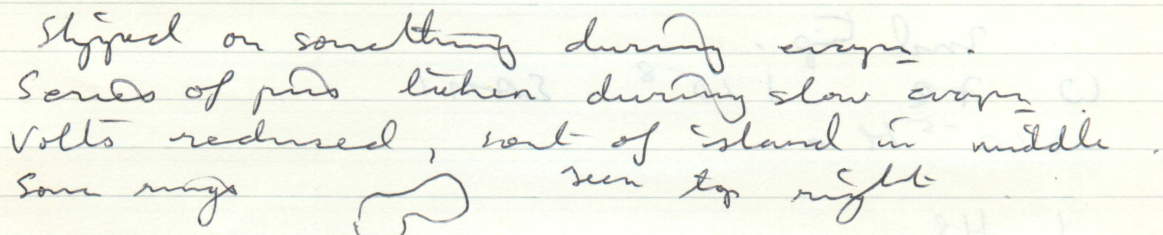 Slipped on something during evapn.
Series of pics taken during slow evapn
Volts reduced, sort of island in middle.
Some rings seen top right.